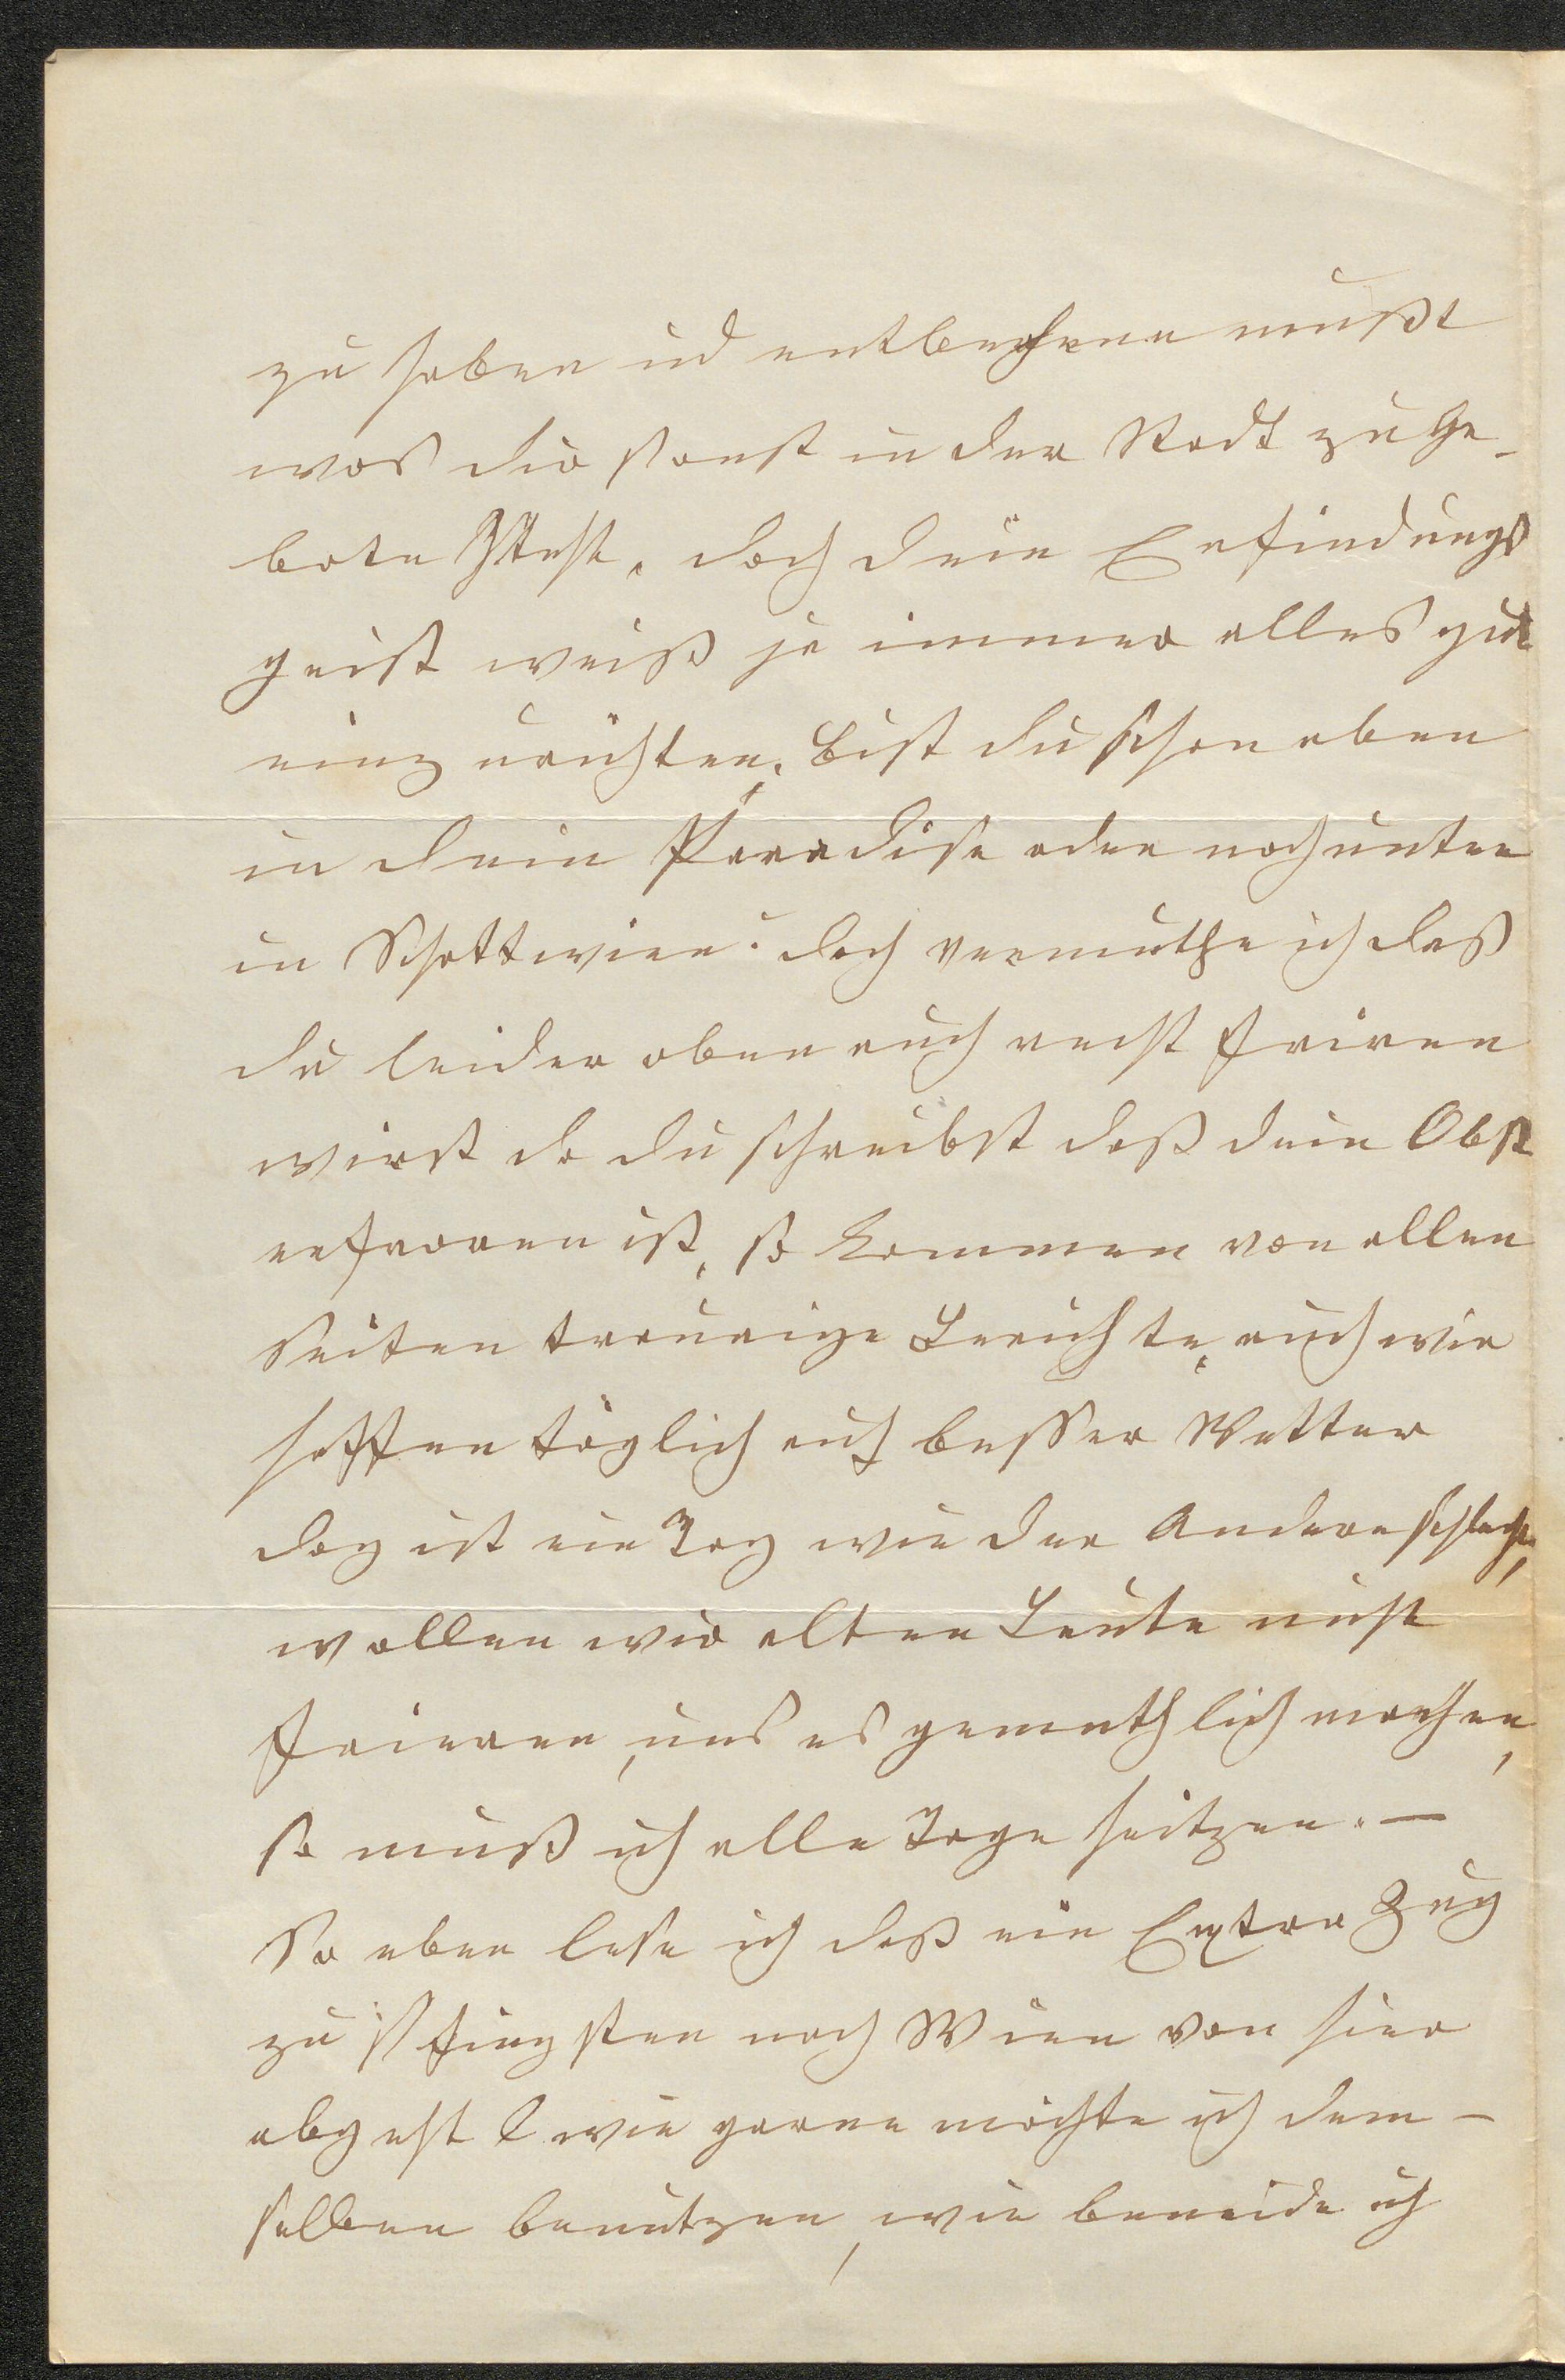 zu haben und entbehren mußt
was dir sonst in der Stadt zu Ge-
bote steht, doch dein Erfindungs
geist weiß ja immer alles gut
einzurichten, bist du schon oben
in dein Paradise oder noch unten
in Schottwien? doch vermuthe ich das
du leider oben auch recht friren
wirst da du schreibst daß dein Obst
erfroren ist, so kommen von allen
Seiten traurige Berichte, auch wir
hoffen täglich auf besser Wetter
doch ist ein Tag wie der Andere schlecht,
wollen wir alten Leute nicht
frieren, uns es gemuthlich machen,
so muß ich alle Tage heitzen. —
So eben lese ich daß ein Extra Zug
zu Pfingsten nach Wien von hier
abgeht wie gerne möchte ich dem-
selben benutzen, wie beneide ich